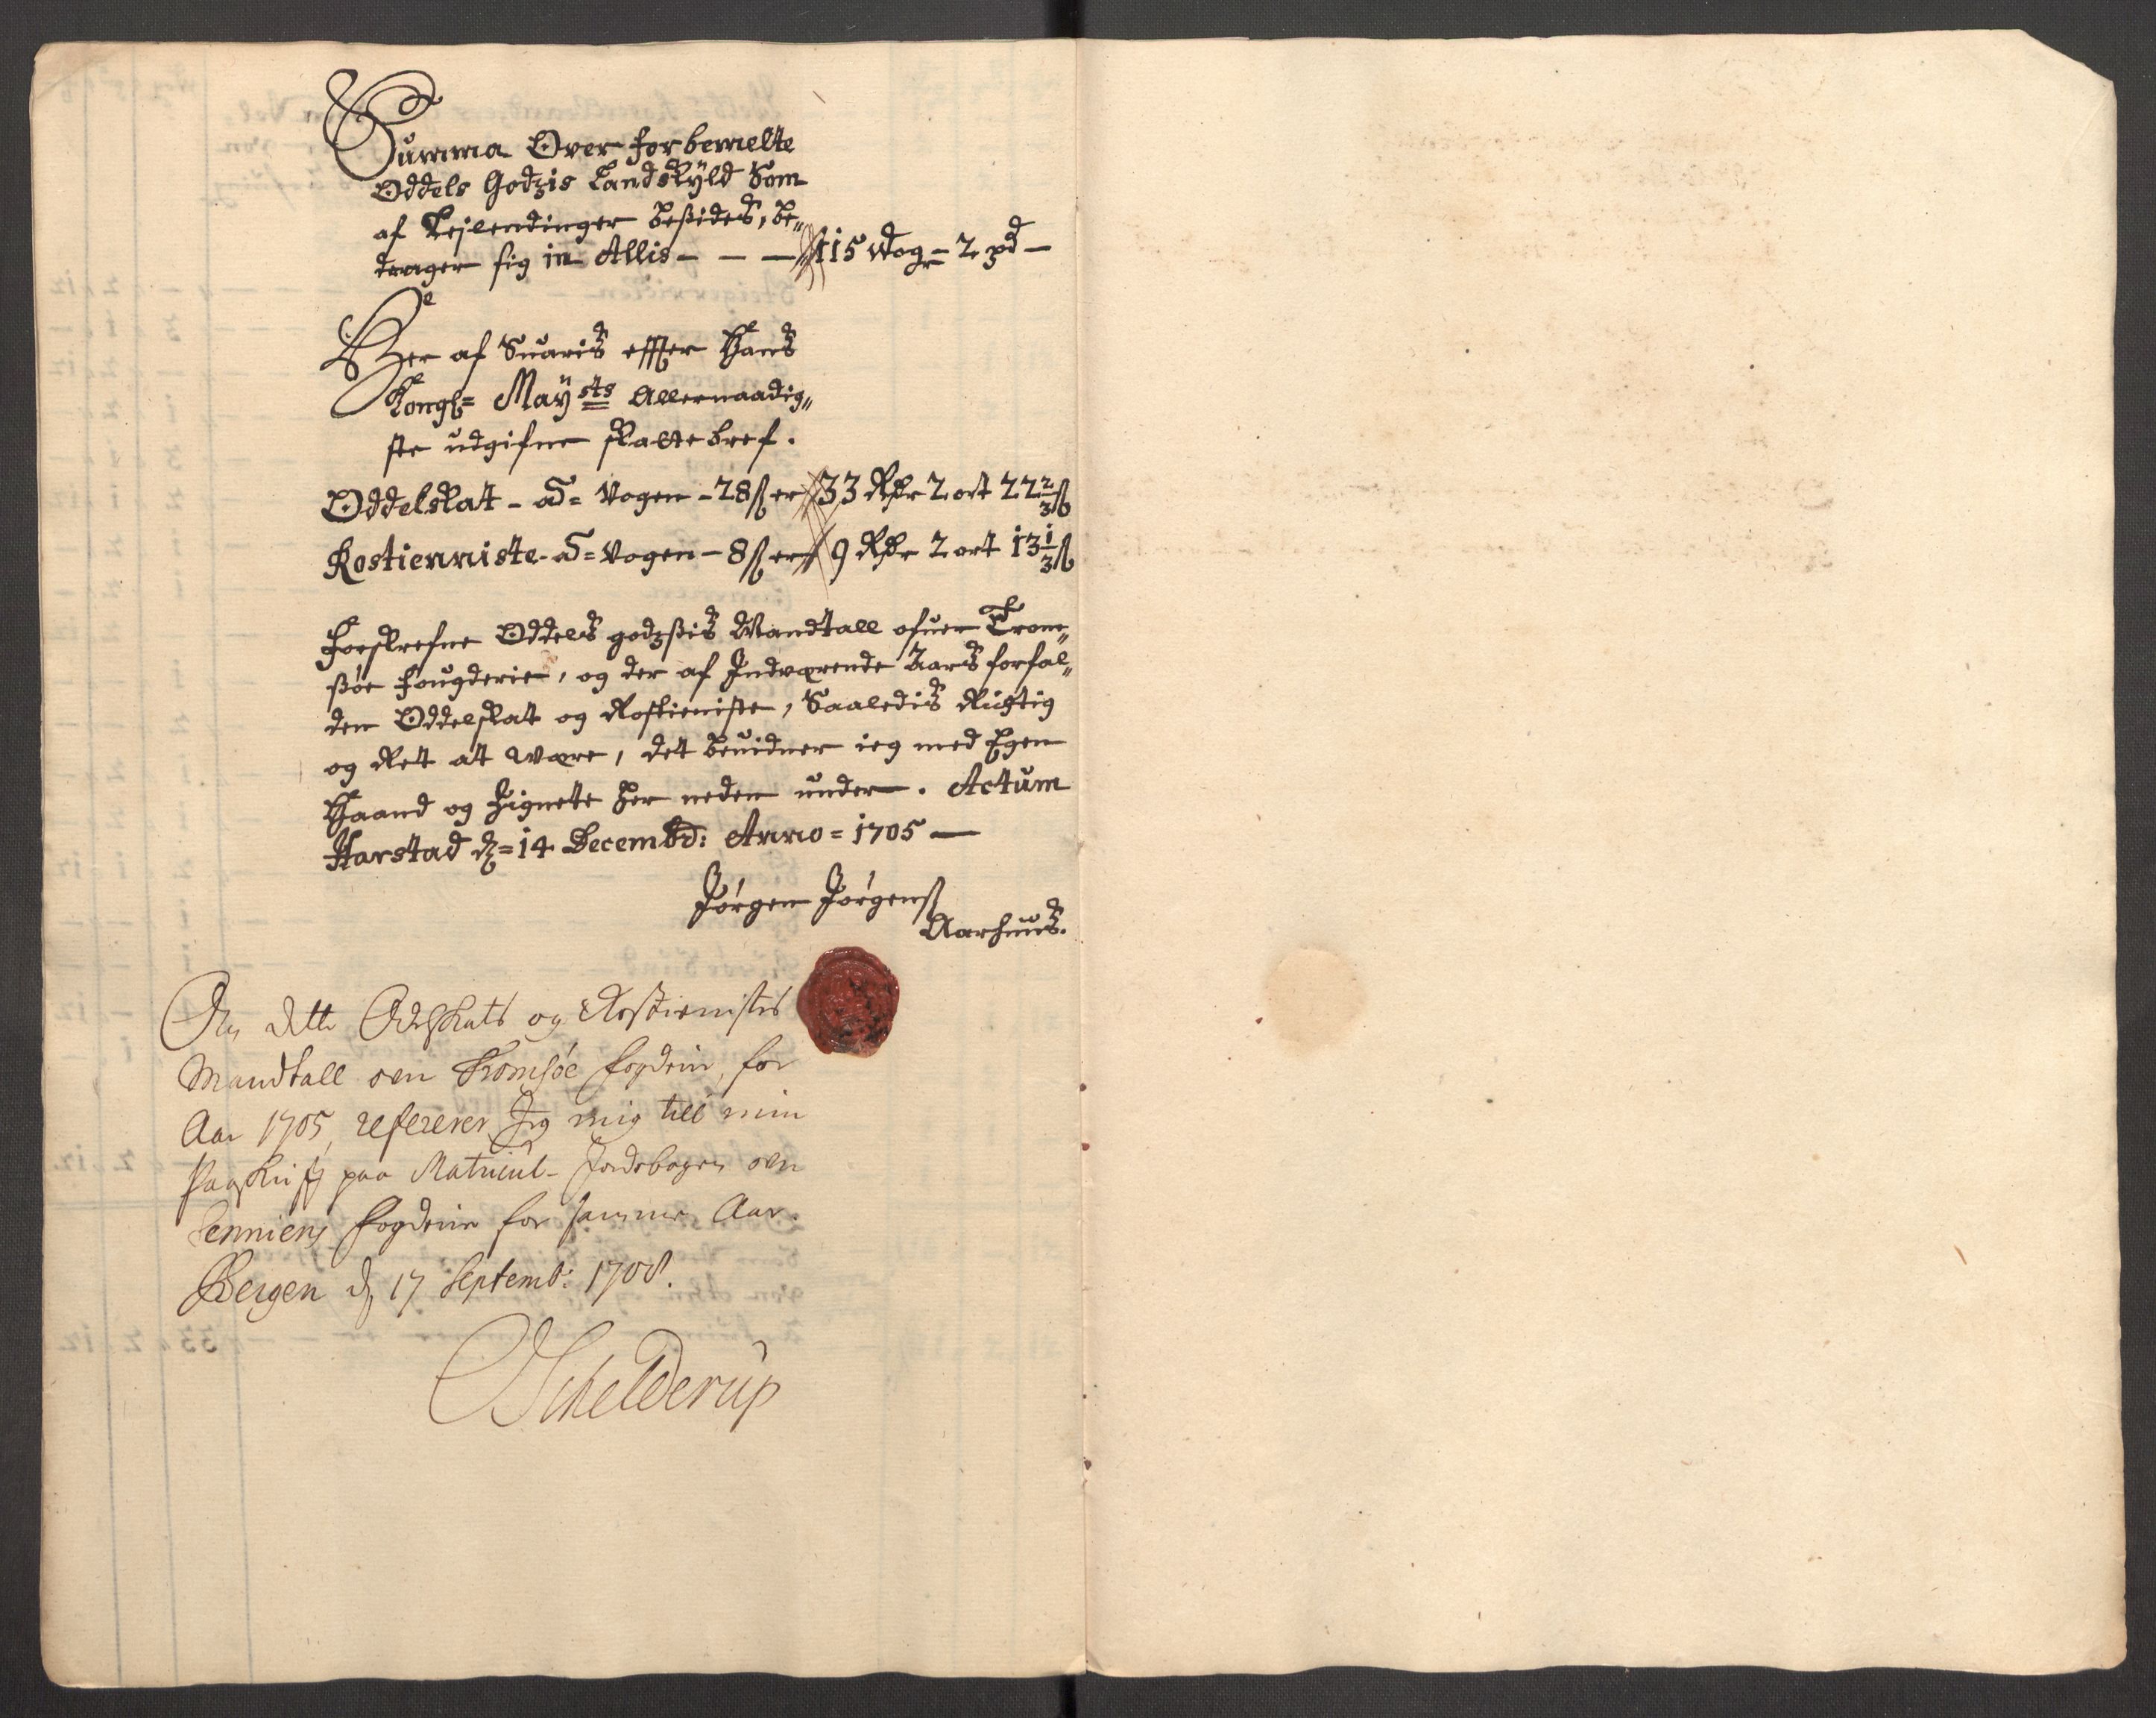 Summa Over forbemelte
Oddels Godzis Landskÿld Som
af Lejlendinger besides, be„
drager sig in Allis – – – 115 Wog_r= 2 pd –
Her af Suaris effter Hans
Kongl= Maÿsts Allernaadig„
ste udgifne skatte bref.
Oddelskat – a= Vogen – 28 ß er 33 Rdr 2 ort 22 2/3 ß
Rostienniste – a= Vogen – 8 ß er 9 Rdr 2 ort 13 1/3 ß
Forskrefne Oddels godzsis Mandtall ofuer Trom„
ßøe fougderie, og der af Indværende Aars forfal„
den Oddelskat og Rostieniste, Saaledis Richtig
og Ret at være, det beuidner ieg med Egen
Haand og Zignete her neden under. Actum
Harstad d= 14 Decembr: Anno = 1705 –
Jørgen Jørgenß
Aarhuus.
dette Odelskats og Rostienistes
Mandtall over Tromsøe fogderie, for
Aar 1705, refererer Jeg mig till min
Paaskrift paa Matricul- Jordebogen over
Senniens fogderie for samme Aar.
Bergen d 17 Septemb: 1708.
Schelderup